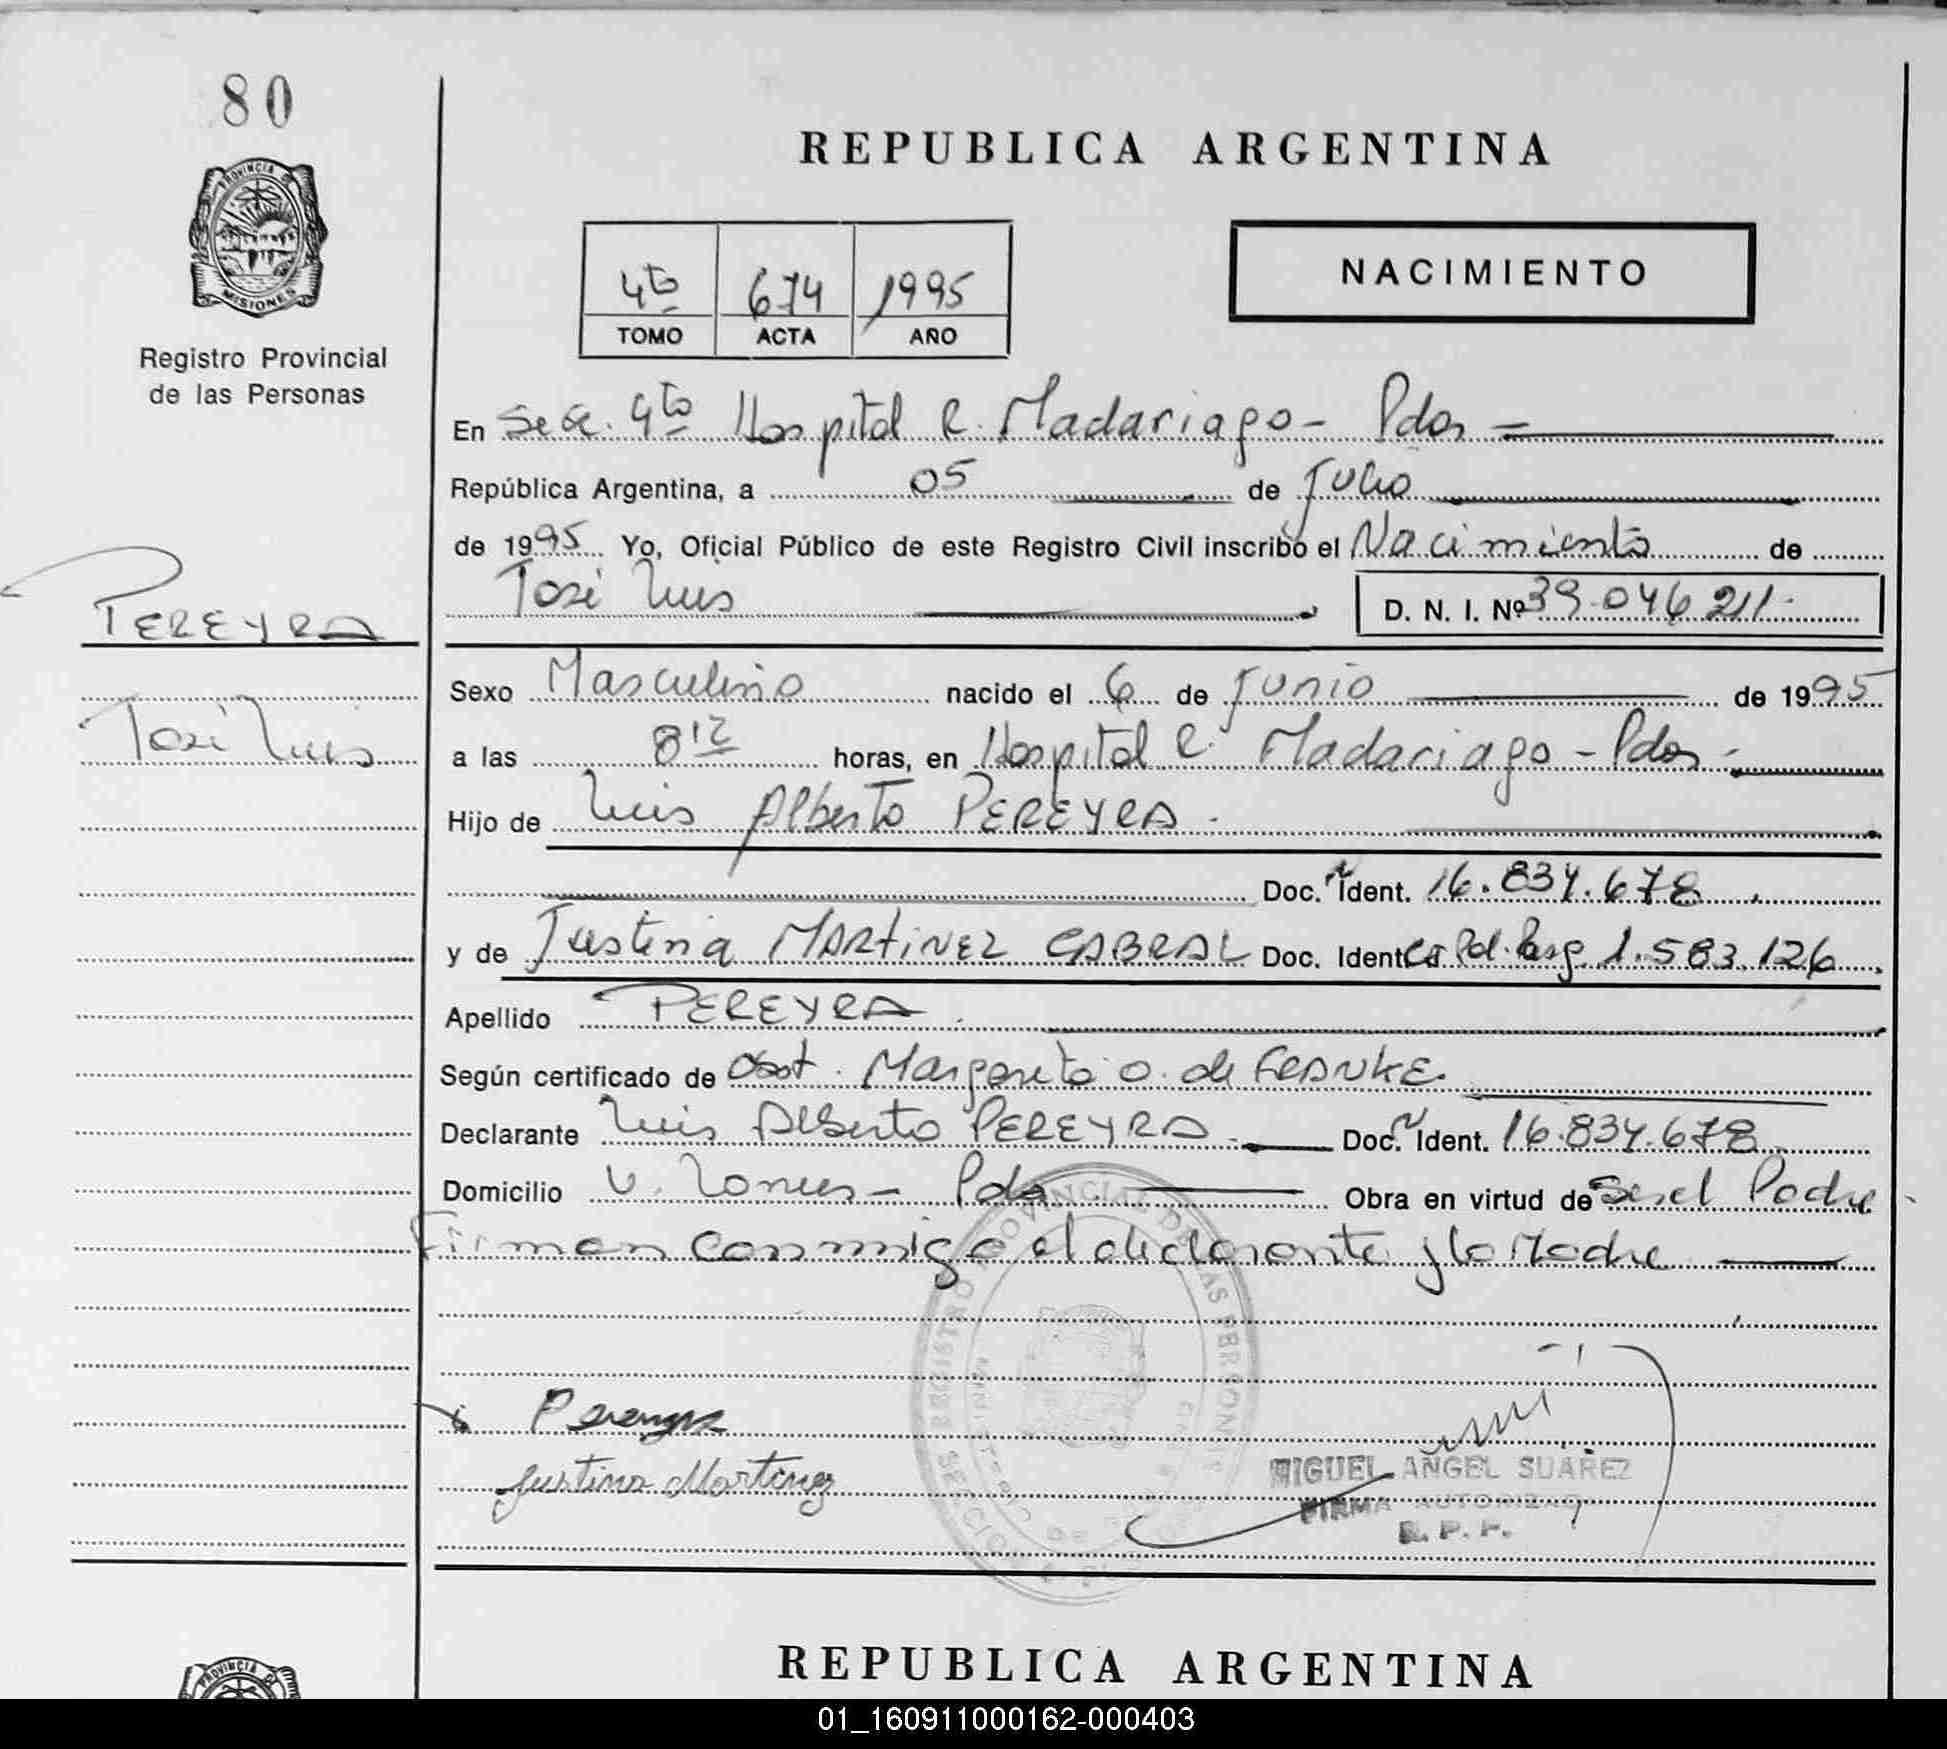 80
PROVINCIA DE
MISIONES
Registro Provincial
de las Personas
PEREYRA
José Luis
REPUBLICA ARGENTINA
4to 674 1995
TOMO ACTA AÑO
NACIMIENTO
En Secc. 4to Hospital R. Madariaga - Pdas -
República Argentina, a 05 de Julio
de 1995 Yo, Oficial Público de este Registro Civil inscribo el Nacimiento de
José Luis D. N. I. Nº 39.046.211.
Sexo Masculino nacido el 6 de Junio de 1995
a las 8 12 horas, en Hospital R. Madariaga - Pdas -
Hijo de Luis Alberto PEREYRA.
Doc. Ident. 16.834.678
y de Justina MARTINEZ CABRAL Doc. Ident. Pol. Parg. 1.583.126
Apellido PEREYRA.
Según certificado de Obst. Margarita O. de FRANKE.
Declarante Luis Alberto PEREYRA. Doc. Ident. 16.834.678
Domicilio - Pdas Obra en virtud de Ser el Padre
Firman conmigo el declarante y la Madre
Pereyra
Justina Martinez
MIGUEL ANGEL SUAREZ
FIRMA
R. P. P.
REPUBLICA ARGENTINA
PROVINCIA DE
01_160911000162-000403